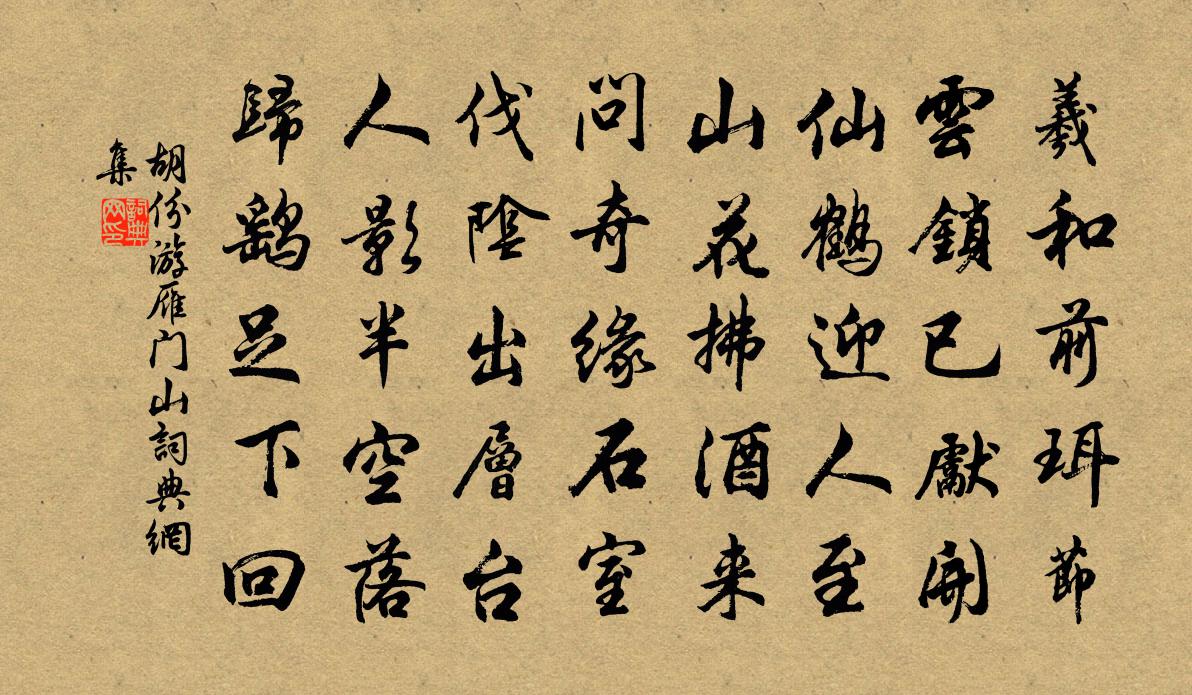 羲和前珥節
雲鎖已獻開
仙鶴迎人至
山花拂酒来
問奇緣石室
伐陰出層台
人影半空落
歸鷁足下回
胡份游雁门山詞典網
集
詞典網印